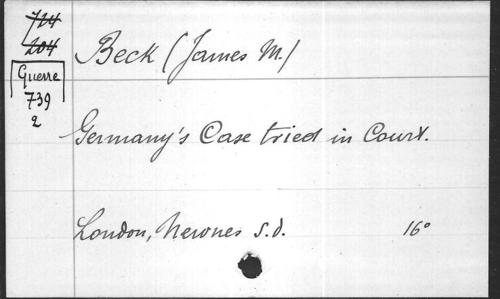 724
204
Guerre
739
2
Beck (James M.)
Germany's Case tried in Court.
London, Newnes s.d. 16°